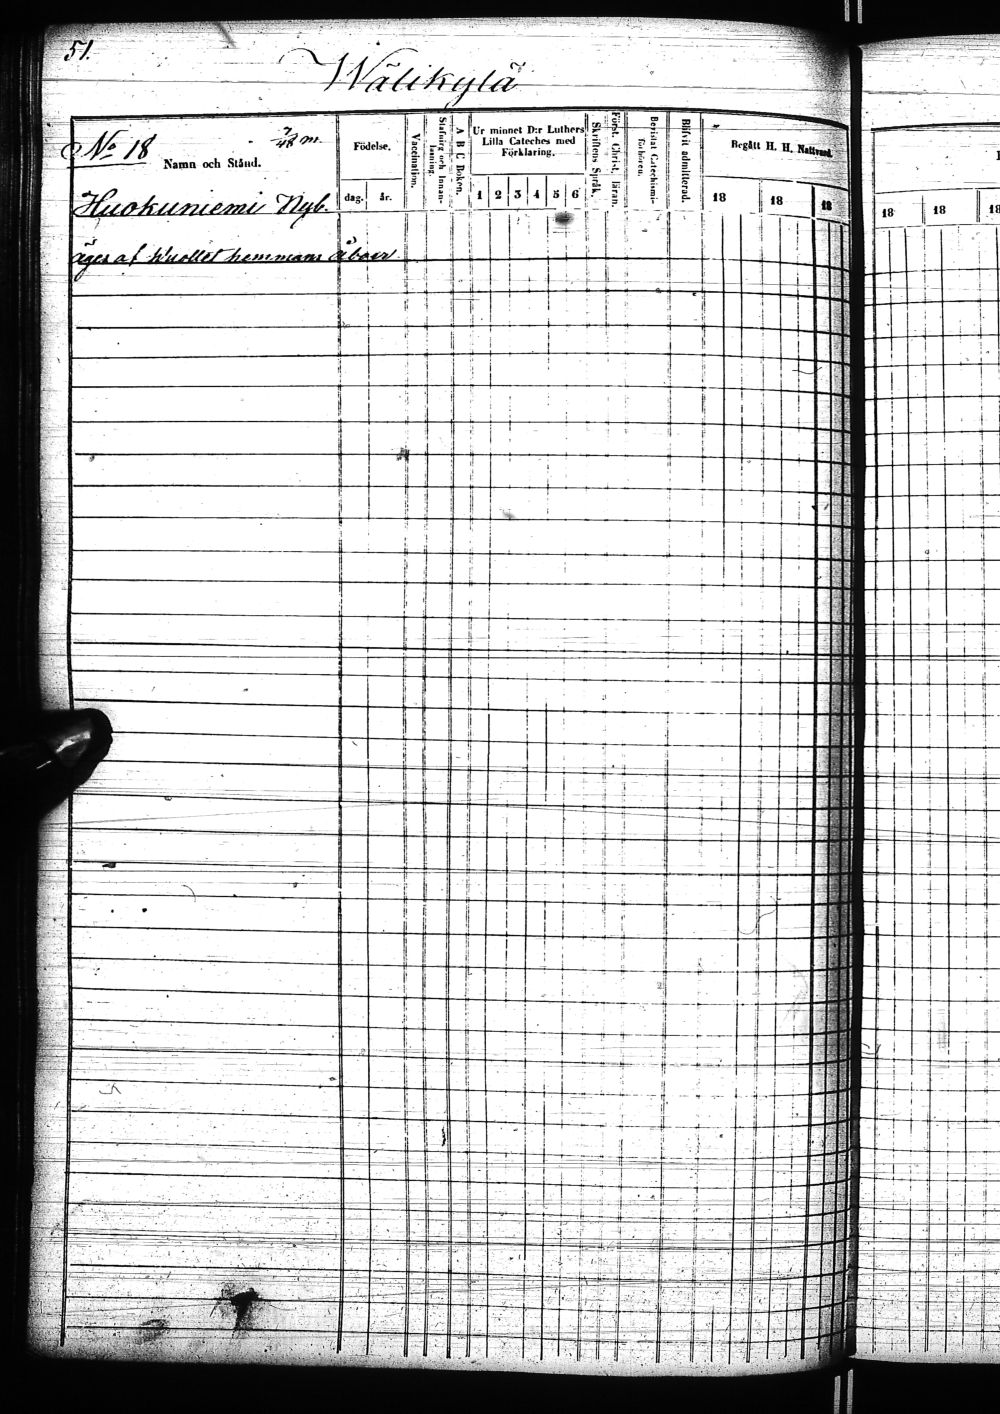 51.
Wälikylä
No 18
7/48 m.
Namn och Stånd.
Födelse.
dag.
år.
Vaccination.
Stafning och Innan-
läsning.
A B C Boken.
Ur minnet D:r Luthers
Lilla Cateches med
Förklaring.
1 2 3 4 5 6
Skriftens Språk.
Först. Christ. läran.
Bevistat Catechismi-
förhören.
Blifvit admitterad.
Begått H. H. Nattvard.
18 18 18
18 18 18
Huokuniemi Nyb.
äges af Wuollet hemmans åboer